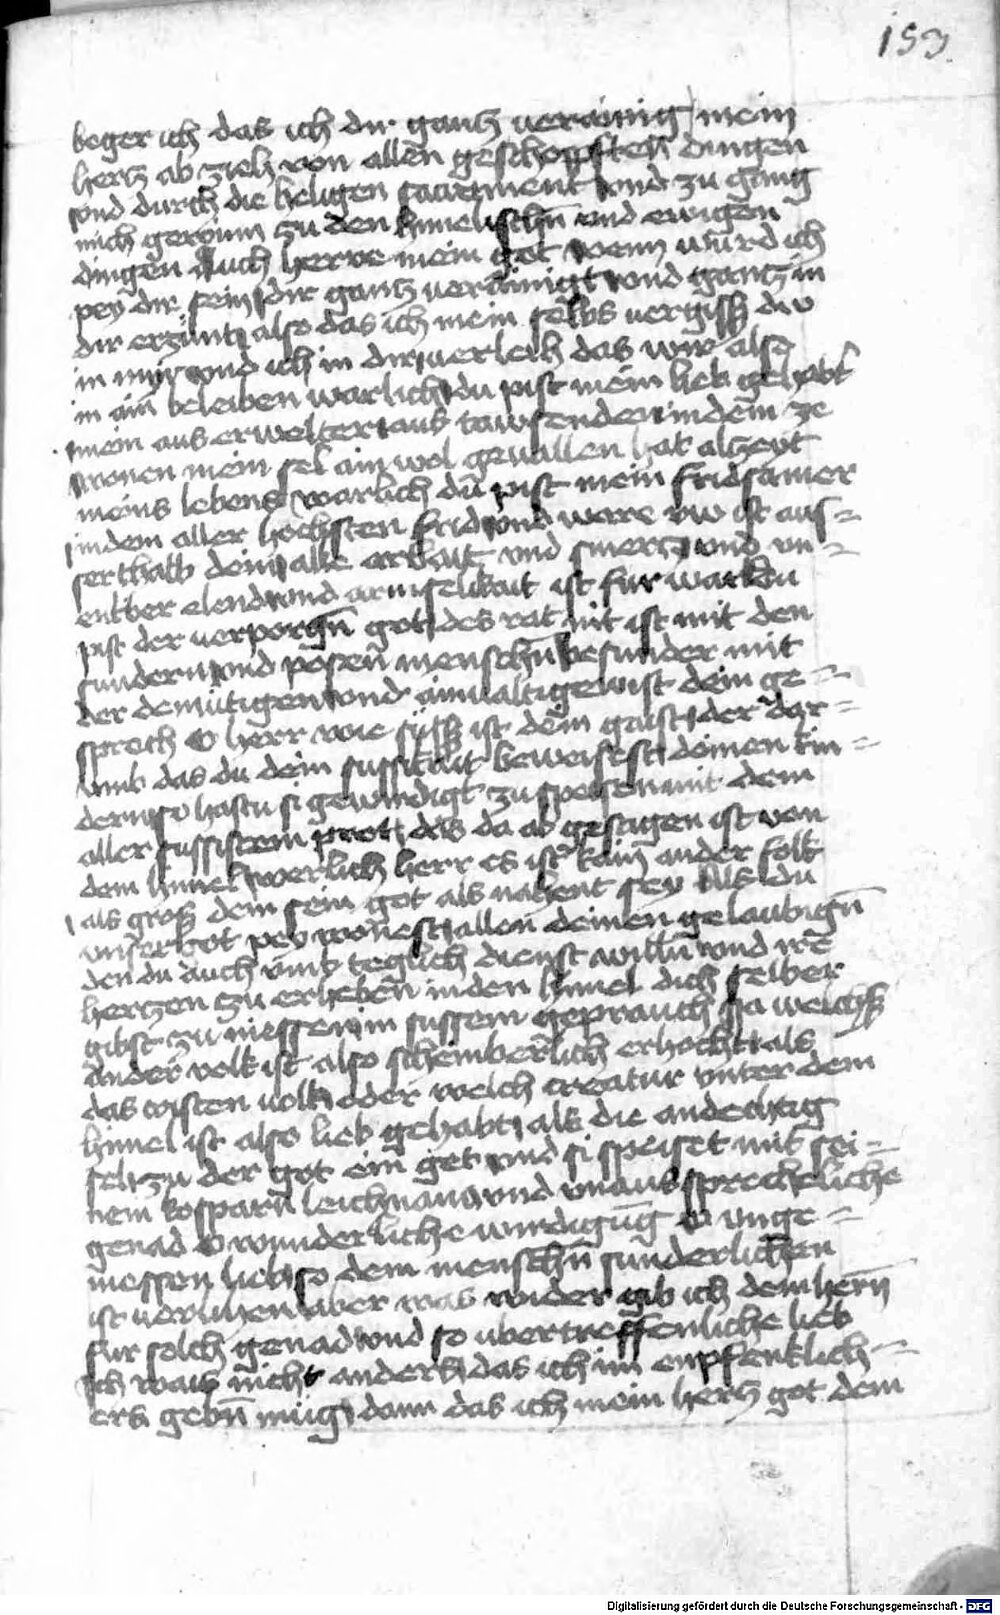 153
beger ich das ich dir gantz verainig mein
hertz ab zieh von allen geschopften dingen
vnd durch die heligen sacrament vnd zu gang
mich gewinn zu den himelischñ vnd ewigen
dingen Auch herre mein got wenn wurd ich
pey dir sein dir gantz verainigt vnd gantz in
dir also das ich mein selbs vergiss du
in mir vnd ich in dir verleich das wir also
in ain beleiben warlich du pist mein lieb gehabt
mein aus erwelter aus tawsenden in dem ze
wonen mein sel ain wol geuallen hat alzeyt
meins lebens warlich du pist mein fridsamer
in dem aller hochsten frid vnd ware rw ist aus=
serthalb dein alle arbait vnd smertz vnd vn=
entber elend vnd armselikait ist fur war du
pist der verporgñ got des rat nit ist mit den
sundern vnd posen menschñ besunder mit
der demutigen vnd ainualtigen ist dein ge=
sprech O herr wie suss ist dein gaist der dar=
vmb das du dein sussikait beweisest deinen kin=
dern so hastu si gewirdigt zu speisen mit dem
aller sussistem prot das da ab gestigen ist von
dem himel werlich herr es ist kain ander folk
als gros dem sein got als nahent sey Als du
vnser got pey wonest allen deinen gelaubigñ
den du auch vmb teglich dienst willñ vnd ire
hertzen zu erheben in den himel dich selber
gibst zu niessen im sussem geprauch Ja welchs
ander volk ist also scheimberlich erhocht als
das cristen volk oder welch creatur vnter dem
himel ist also lieb gehabt als die andechtig
sel zu der got ein get vnd si speiset mit sei=
nem kosparñ leichnam vnd vnaus sprecheliche
genad O wunderliche wirdigung O vnge=
messen lieb so dem menschñ sunderlichen
ist verlihen aber was wider gib ich dem herñ
fur solch genad vnd so vbertreffenliche lieb
Ich wais nicht anders das ich im enpfenklich=
ers gebñ mug dann das ich mein hertz got dem
Digitalisierung gefördert durch die Deutsche Forschungsgemeinschaft - DFG